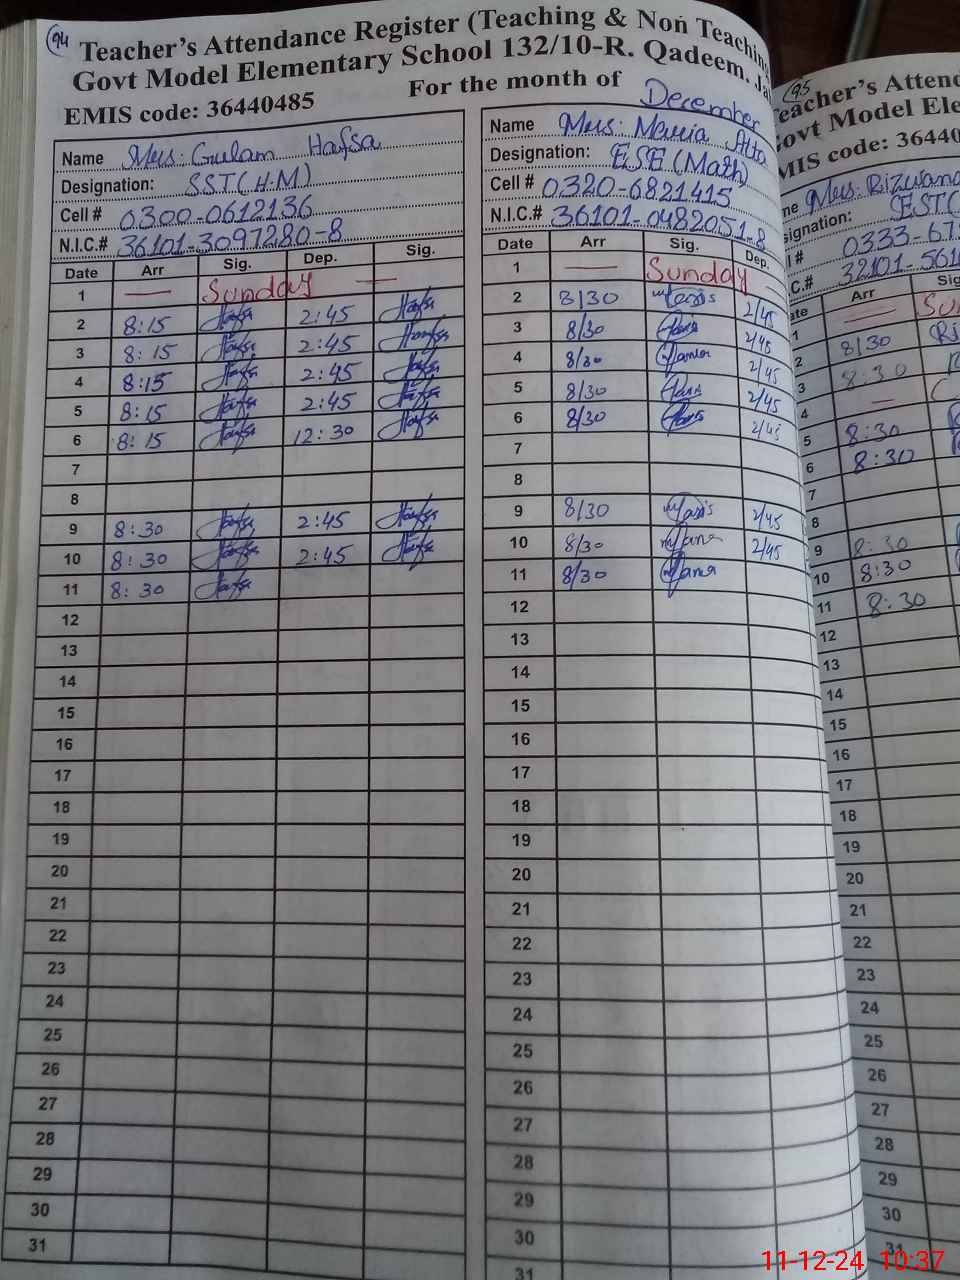 94
Teacher's Attendance Register (Teaching & Non Teaching
Govt Model Elementary School 132/10-R. Qadeem. Ja
EMIS code: 36440485
For the month of December
Name Mrs: Gulam Hafsa
Designation: SST(H.M)
Cell # 0300-0612136
N.I.C.# 36101-3097280-8
Date Arr Sig. Dep. Sig.
1 — Sunday —
2 8:15 Hafsa 2:45 Hafsa
3 8:15 Hafsa 2:45 Hafsa
4 8:15 Hafsa 2:45 Hafsa
5 8:15 Hafsa 2:45 Hafsa
6 8:15 Hafsa 12:30 Hafsa
7
8
9 8:30 Hafsa 2:45 Hafsa
10 8:30 Hafsa 2:45 Hafsa
11 8:30 Hafsa
12
13
14
15
16
17
18
19
20
21
22
23
24
25
26
27
28
29
30
31
Name Mrs: Maria Alta
Designation: ESE (Math)
Cell # 0320-6821415
N.I.C.# 36101-0482051-8
Date Arr Sig. Dep.
1 — Sunday —
2 8/30 2/45
3 8/30 2/45
4 8/30 2/45
5 8/30 2/45
6 8/30 2/45
7
8
9 8/30 2/45
10 8/30 2/45
11 8/30
12
13
14
15
16
17
18
19
20
21
22
23
24
25
26
27
28
29
30
31
95
eacher's Attend
ovt Model Ele
MIS code: 36440
me Mrs: Rizwana
signation: EST(
l # 0333-67
.C.# 32101-561
ate Arr Sig
1 — Su
2 8/30
3 8:30
4 —
5 8:30
6 8:30
7
8
9 8:30
10 8:30
11 8:30
12
13
14
15
16
17
18
19
20
21
22
23
24
25
26
27
28
29
30
31
11-12-24 10:37